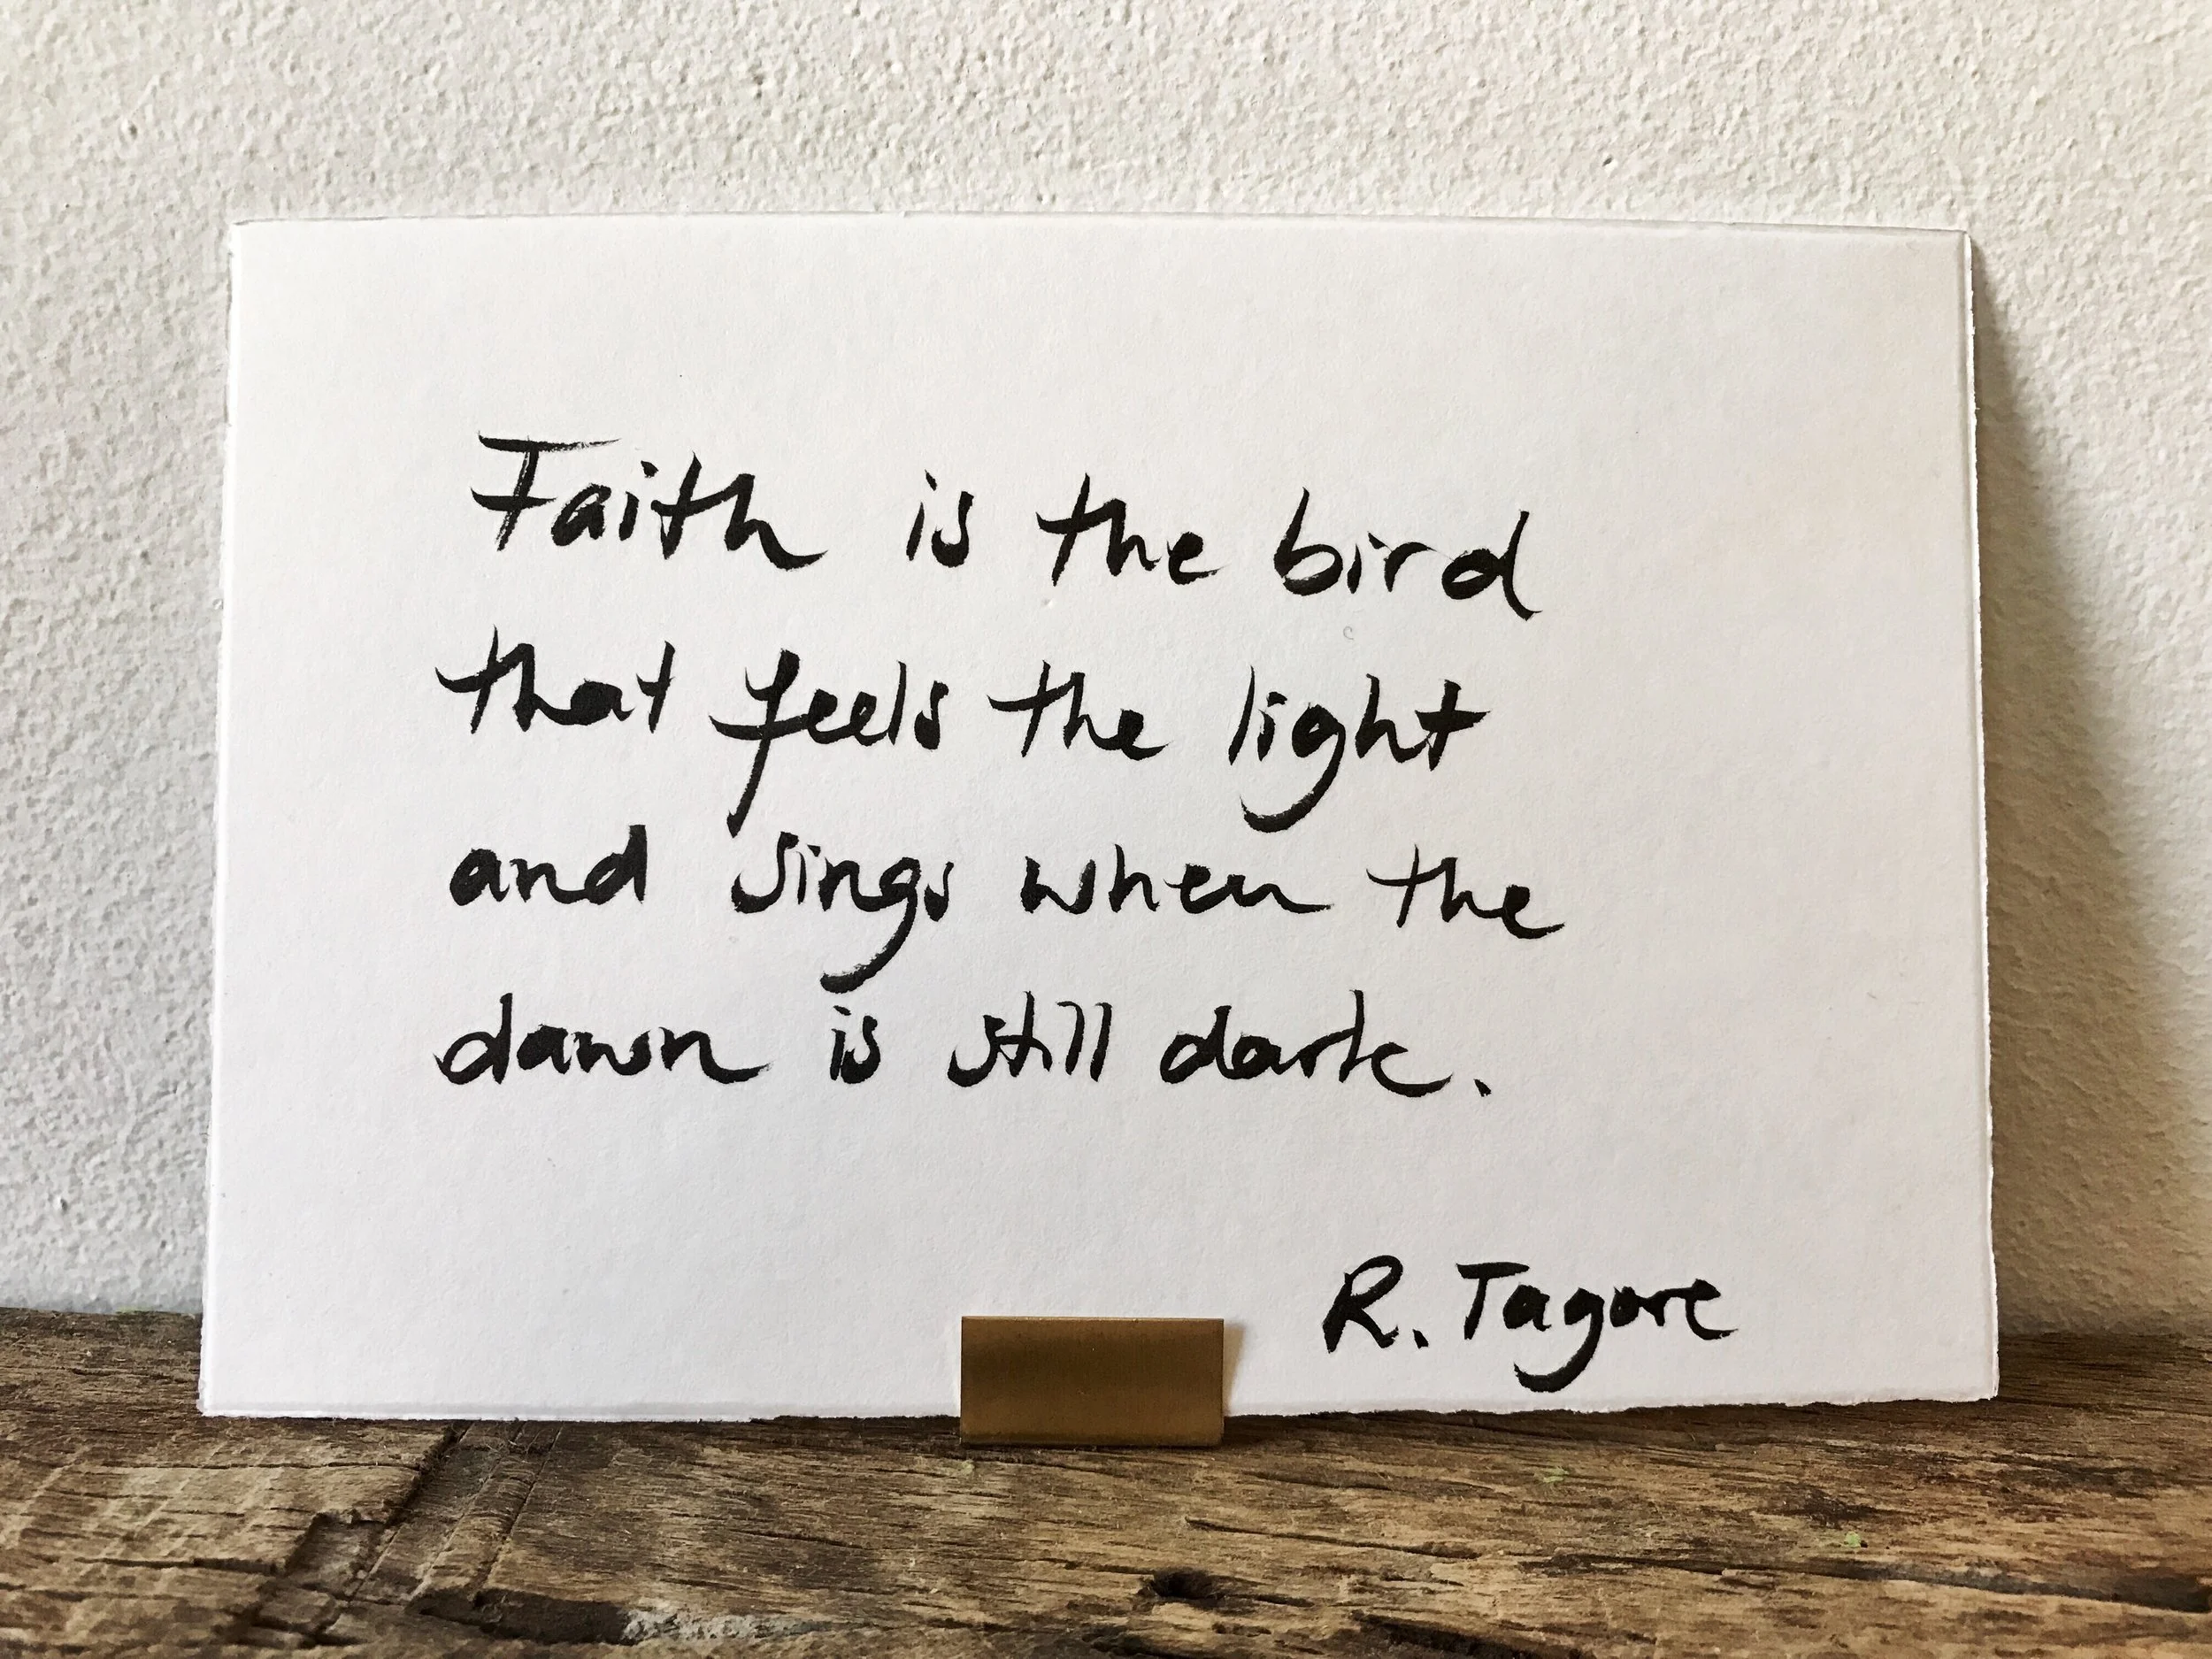 Faith is the bird
that feels the light
and sings when the
dawn is still dark.
R. Tagore